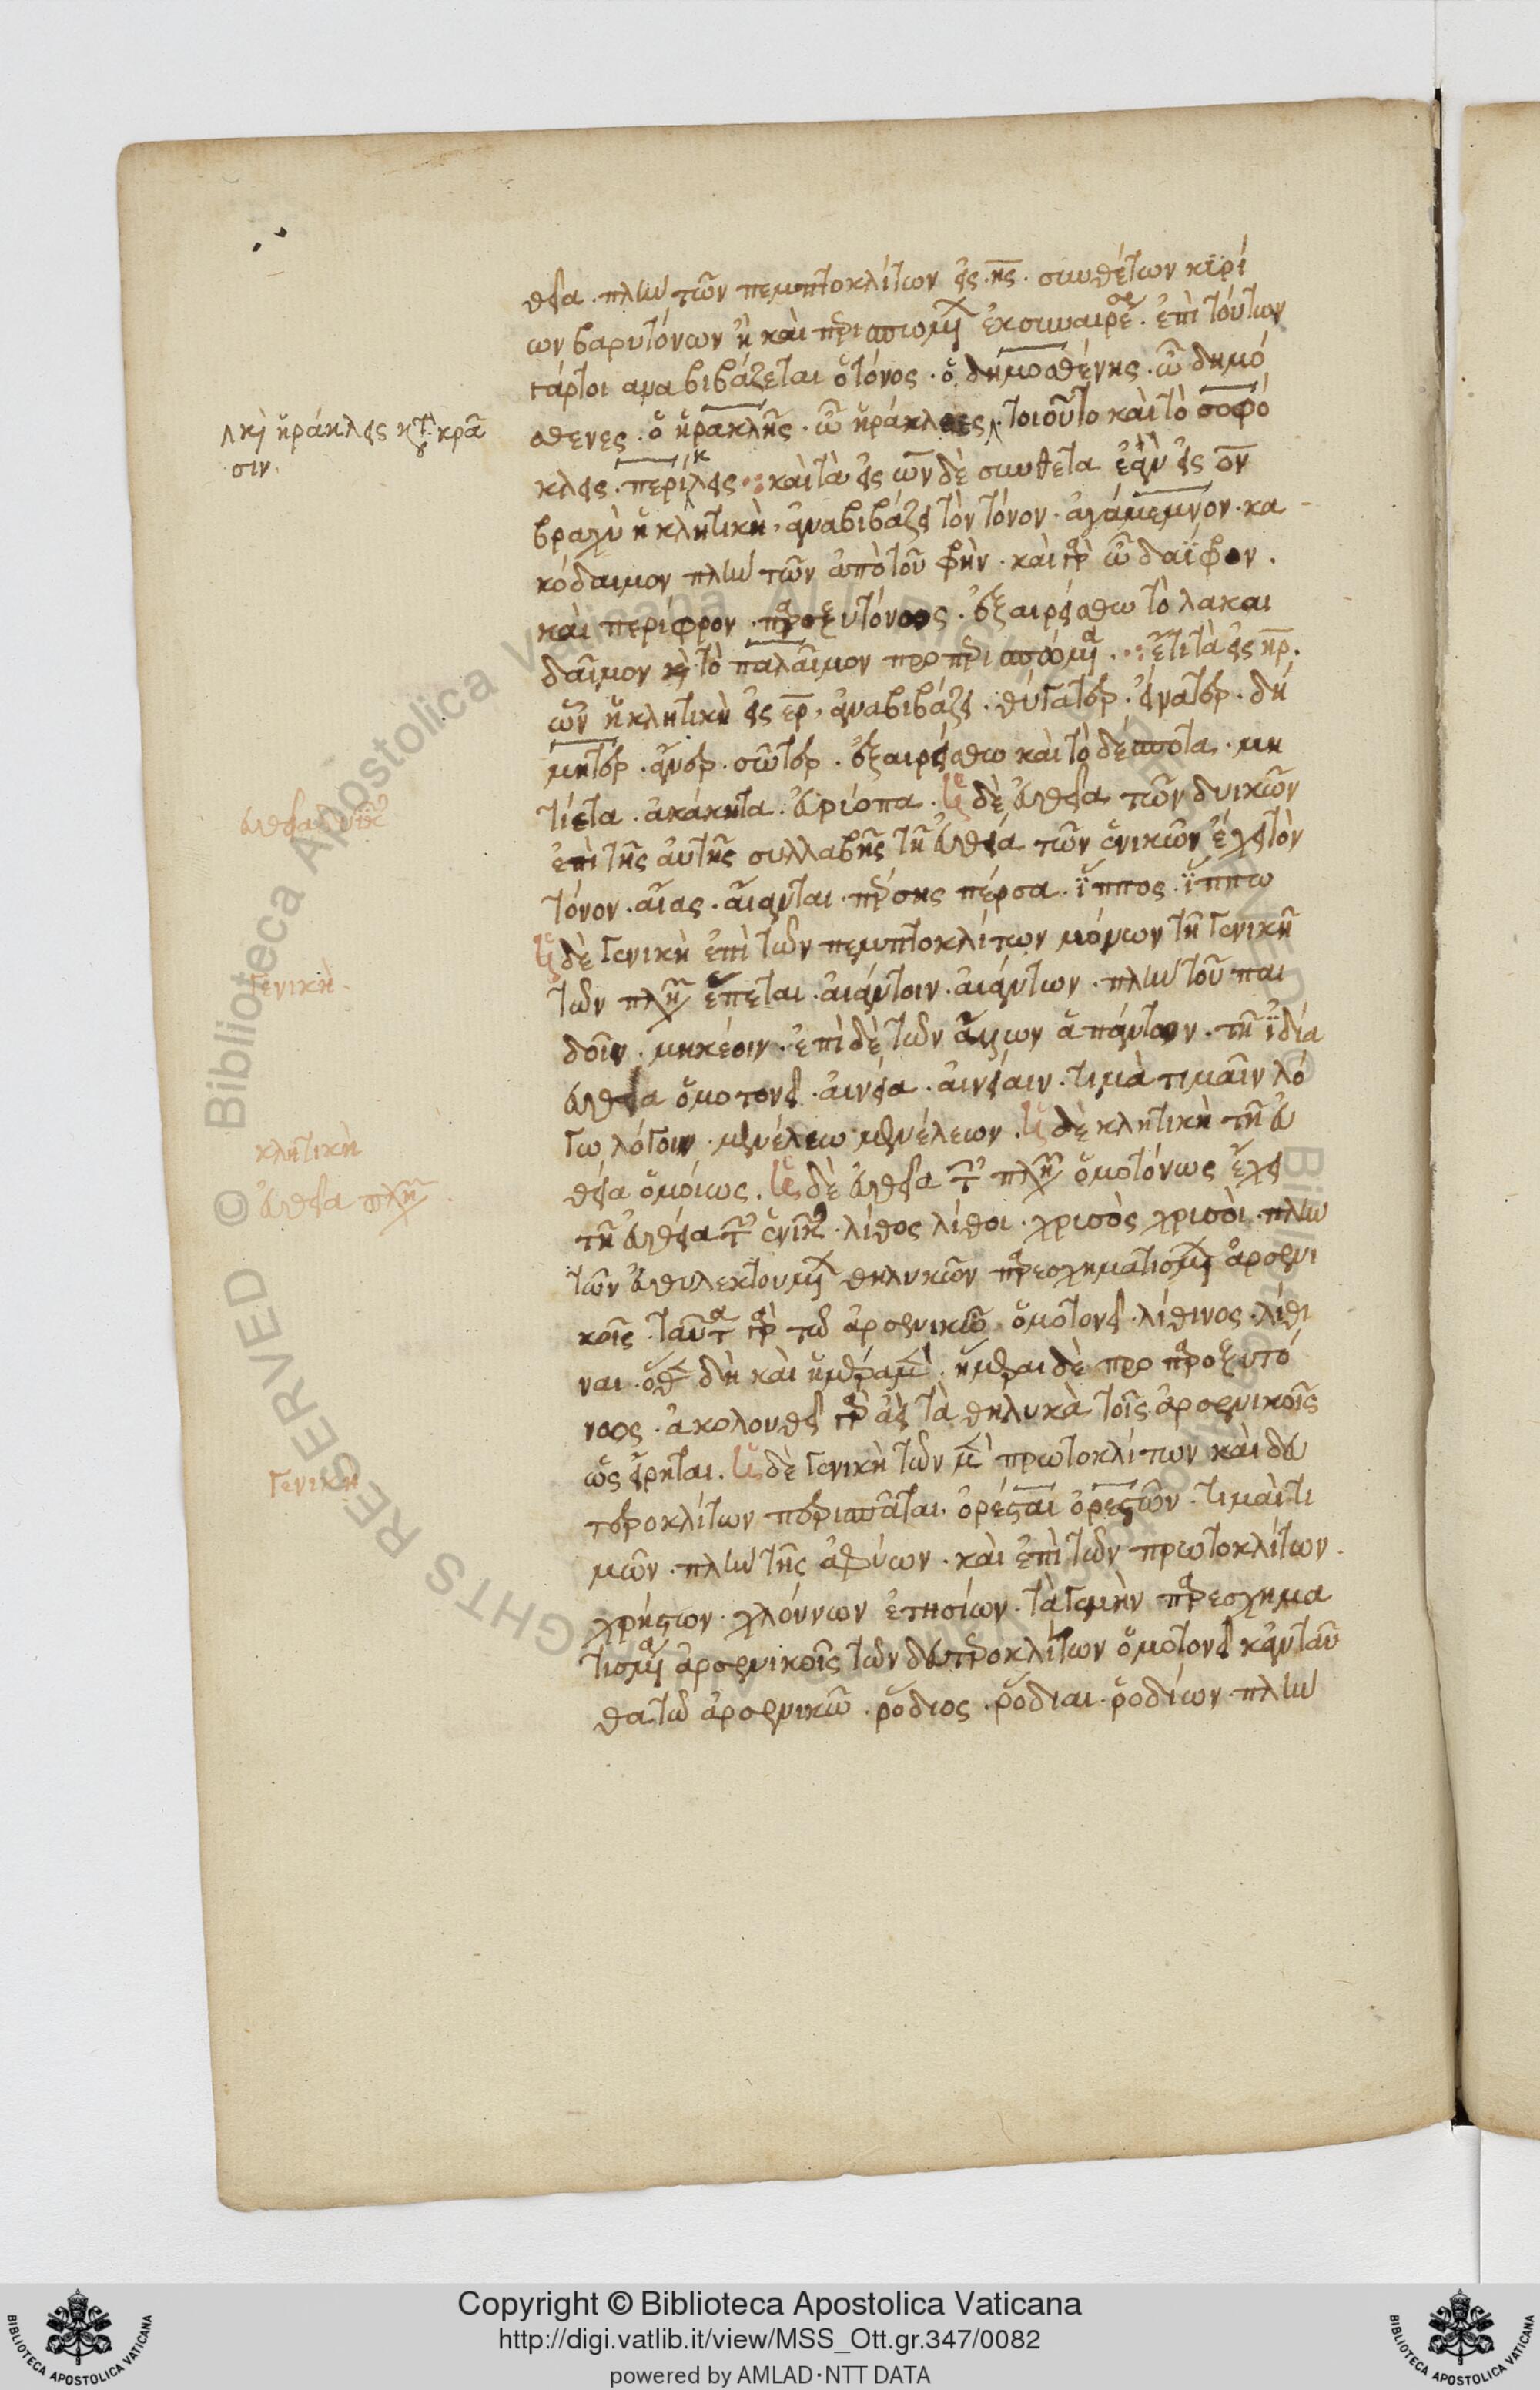 θεῖα. πλὴν τῶν πεμπτοκλίτων εἰς ης. συνθέτων κυρί
ων βαρυτόνων ἢ καὶ περισπωμένων ἐκ συναιρέσεως. ἐπὶ τούτων
γάρτοι ἀναβιβάζεται ὁ τόνος. ὁ δημοσθένης. ὦ δημό
σθενες. ὁ ἡρακλῆς. ὦ ἡράκλεες. τοιοῦτο καὶ τὸ σοφό
κλεις. περίκλεις. καὶ τὰ εἰς ων δὲ σύνθετα ἐὰν εἰς ον
βραχὺ ἡ κλητικὴ, ἀναβιβάζει τὸν τόνον. ἀγάμεμνον. κα
κόδαιμον πλὴν τῶν ἀπὸ τοῦ φὴν. καὶ γὰρ ὦ δαΐφρον.
καὶ περίφρον παροξυτόνως. ἐξαιρείσθω τὸ λακαι
δαῖμον καὶ τὸ παλαῖμον προπερισπώμενα. ἔτι τὰ εἰς ηρ.
ὧν ἡ κλητικὴ εἰς ερ, ἀναβιβάζει. θύγατερ. εἴνατερ. δή
μητερ. ἄνερ. σῶτερ. ἐξαιρείσθω καὶ τὸ δέσποτα. μη
τίετα. ἀκάκητα. εὐρύοπα. ἡ δὲ εὐθεῖα τῶν δυικῶν
ἐπὶ τῆς αὐτῆς συλλαβῆς τῇ εὐθείᾳ τῶν ἑνικῶν ἔχει τὸν
τόνον. αἴας. αἴανται. πέρσης πέρσα. ἵππος. ἵππω
ἡ δὲ γενικὴ ἐπὶ τῶν πεμπτοκλίτων μόνων τῇ γενικῇ
τῶν πληθυντικῶν ἕπεται. αἰάντοιν. αἰάντων. πλὴν τοῦ παι
δοῖν. μηκέοιν. ἐπὶ δὲ τῶν ἄλλων ἁπάντων. τῇ ἰδίᾳ
εὐθεῖα ὁμοτονεῖ. αἰνεία. αἰνείαιν. τιμὰ τιμαῖν λό
γω λόγοιν. μενέλεω μενέλεων. ἡ δὲ κλητικὴ τῇ εὐ
θείᾳ ὁμοίως. ἡ δὲ εὐθεῖα τῶν πληθυντικῶν ὁμοτόνως ἔχει
τῇ εὐθείᾳ τῶν ἑνικῶν. λίθος λίθοι. χρυσὸς χρυσοὶ. πλὴν
τῶν εὐθυλεκτουμένων θηλυκῶν παρεσχηματισμένων ἀρσενι
κοῖς. ταῦτα γὰρ τῷ ἀρσενικῷ ὁμοτονεῖ. λίθινος. λίθι
ναι. ὅθεν δὴ καὶ ἡμέραι μὲν. ἥμεραι δὲ προπαροξυτό
νως. ἀκολουθεῖ γὰρ ἀεὶ τὰ θηλυκὰ τοῖς ἀρσενικοῖς
ὡς εἴρηται. ἡ δὲ γενικὴ τῶν μὲν πρωτοκλίτων καὶ δευ
τεροκλίτων περισπᾶται. ὀρέσται ὀρεστῶν. τιμαὶ τι
μῶν. πλὴν τῆς ἀφύων. καὶ ἐπὶ τῶν πρωτοκλίτων.
χρήστων. χλούνων ἐτησίων. τά γε μὴν παρεσχημα
τισμένα ἀρσενικοῖς τῶν δευτεροκλίτων ὁμοτονεῖ κἀνταῦ
θα τῷ ἀρσενικῷ. ῥόδιος. ῥόδιαι. ῥοδίων. πλὴν
καὶ ἡράκλεις κατὰ κρᾶ
σιν.
εὐθεῖα δυικῶν
γενικὴ.
κλητικὴ
εὐθεῖα πληθυντικῶν.
γενικὴ
Copyright © Biblioteca Apostolica Vaticana
http://digi.vatlib.it/view/MSS_Ott.gr.347/0082
powered by AMLAD·NTT DATA